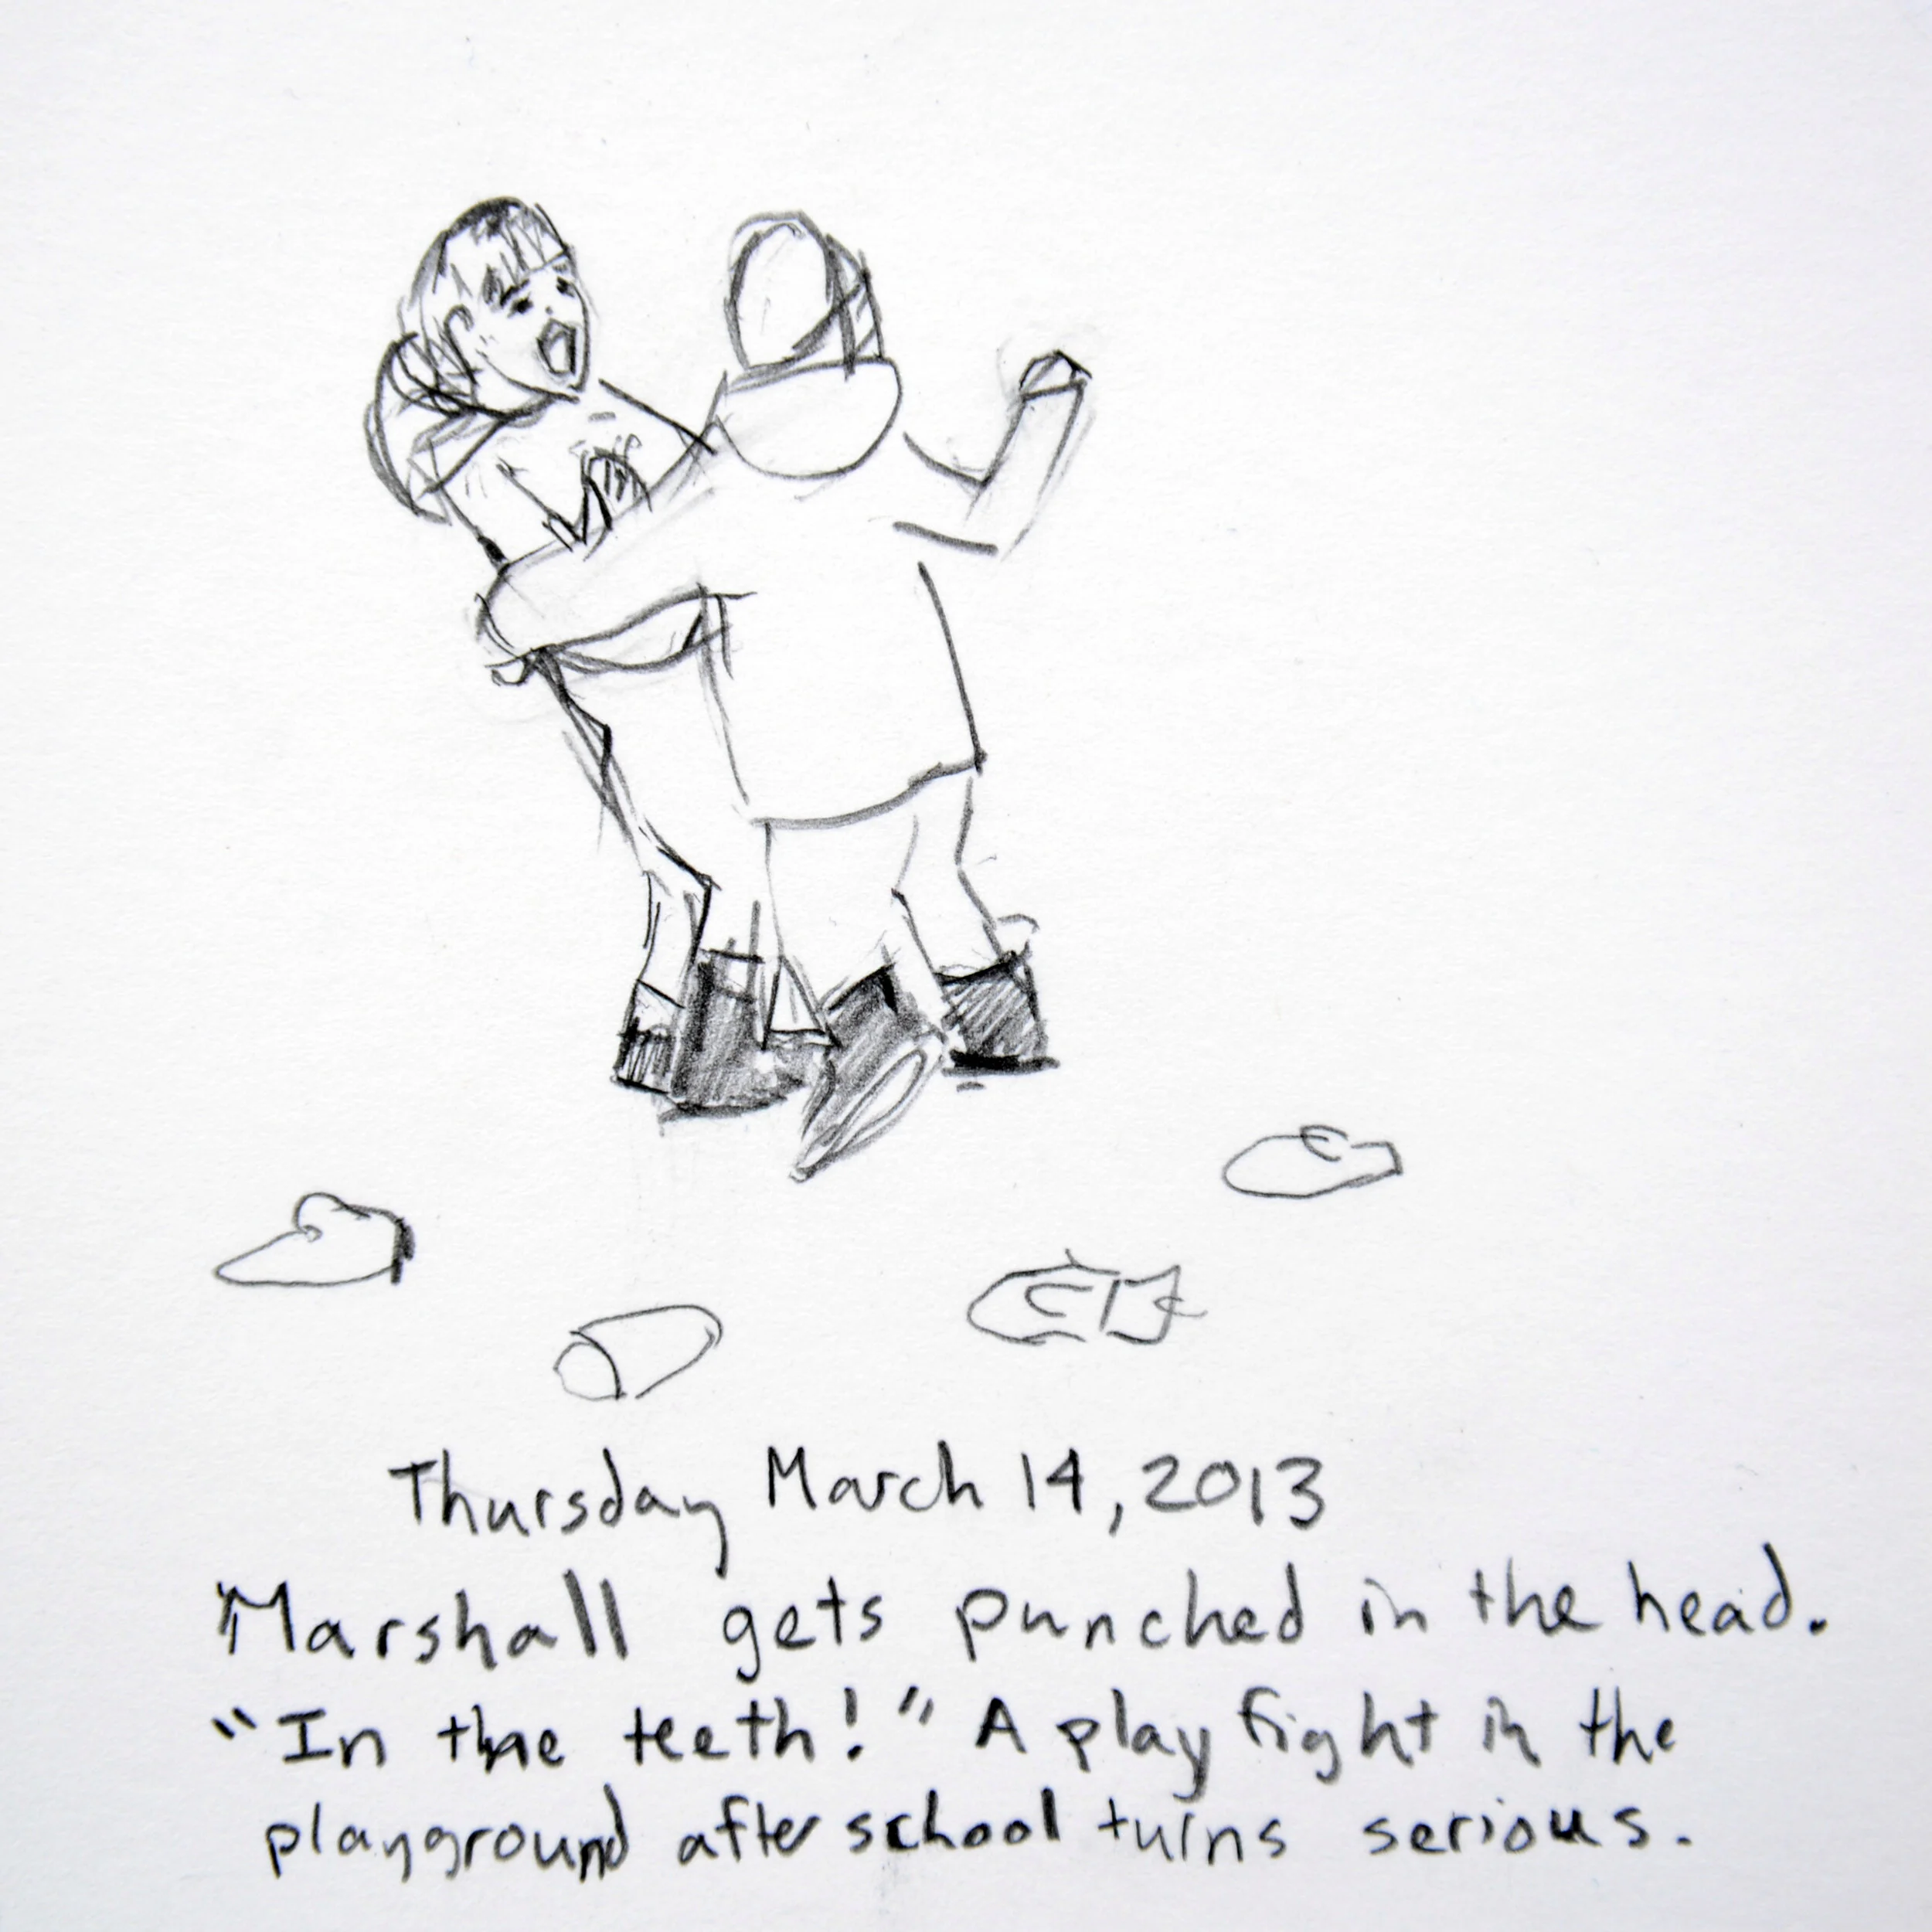 Thursday March 14, 2013
Marshall gets punched in the head.
"In the teeth!" A play fight in the
playground after school turns serious.